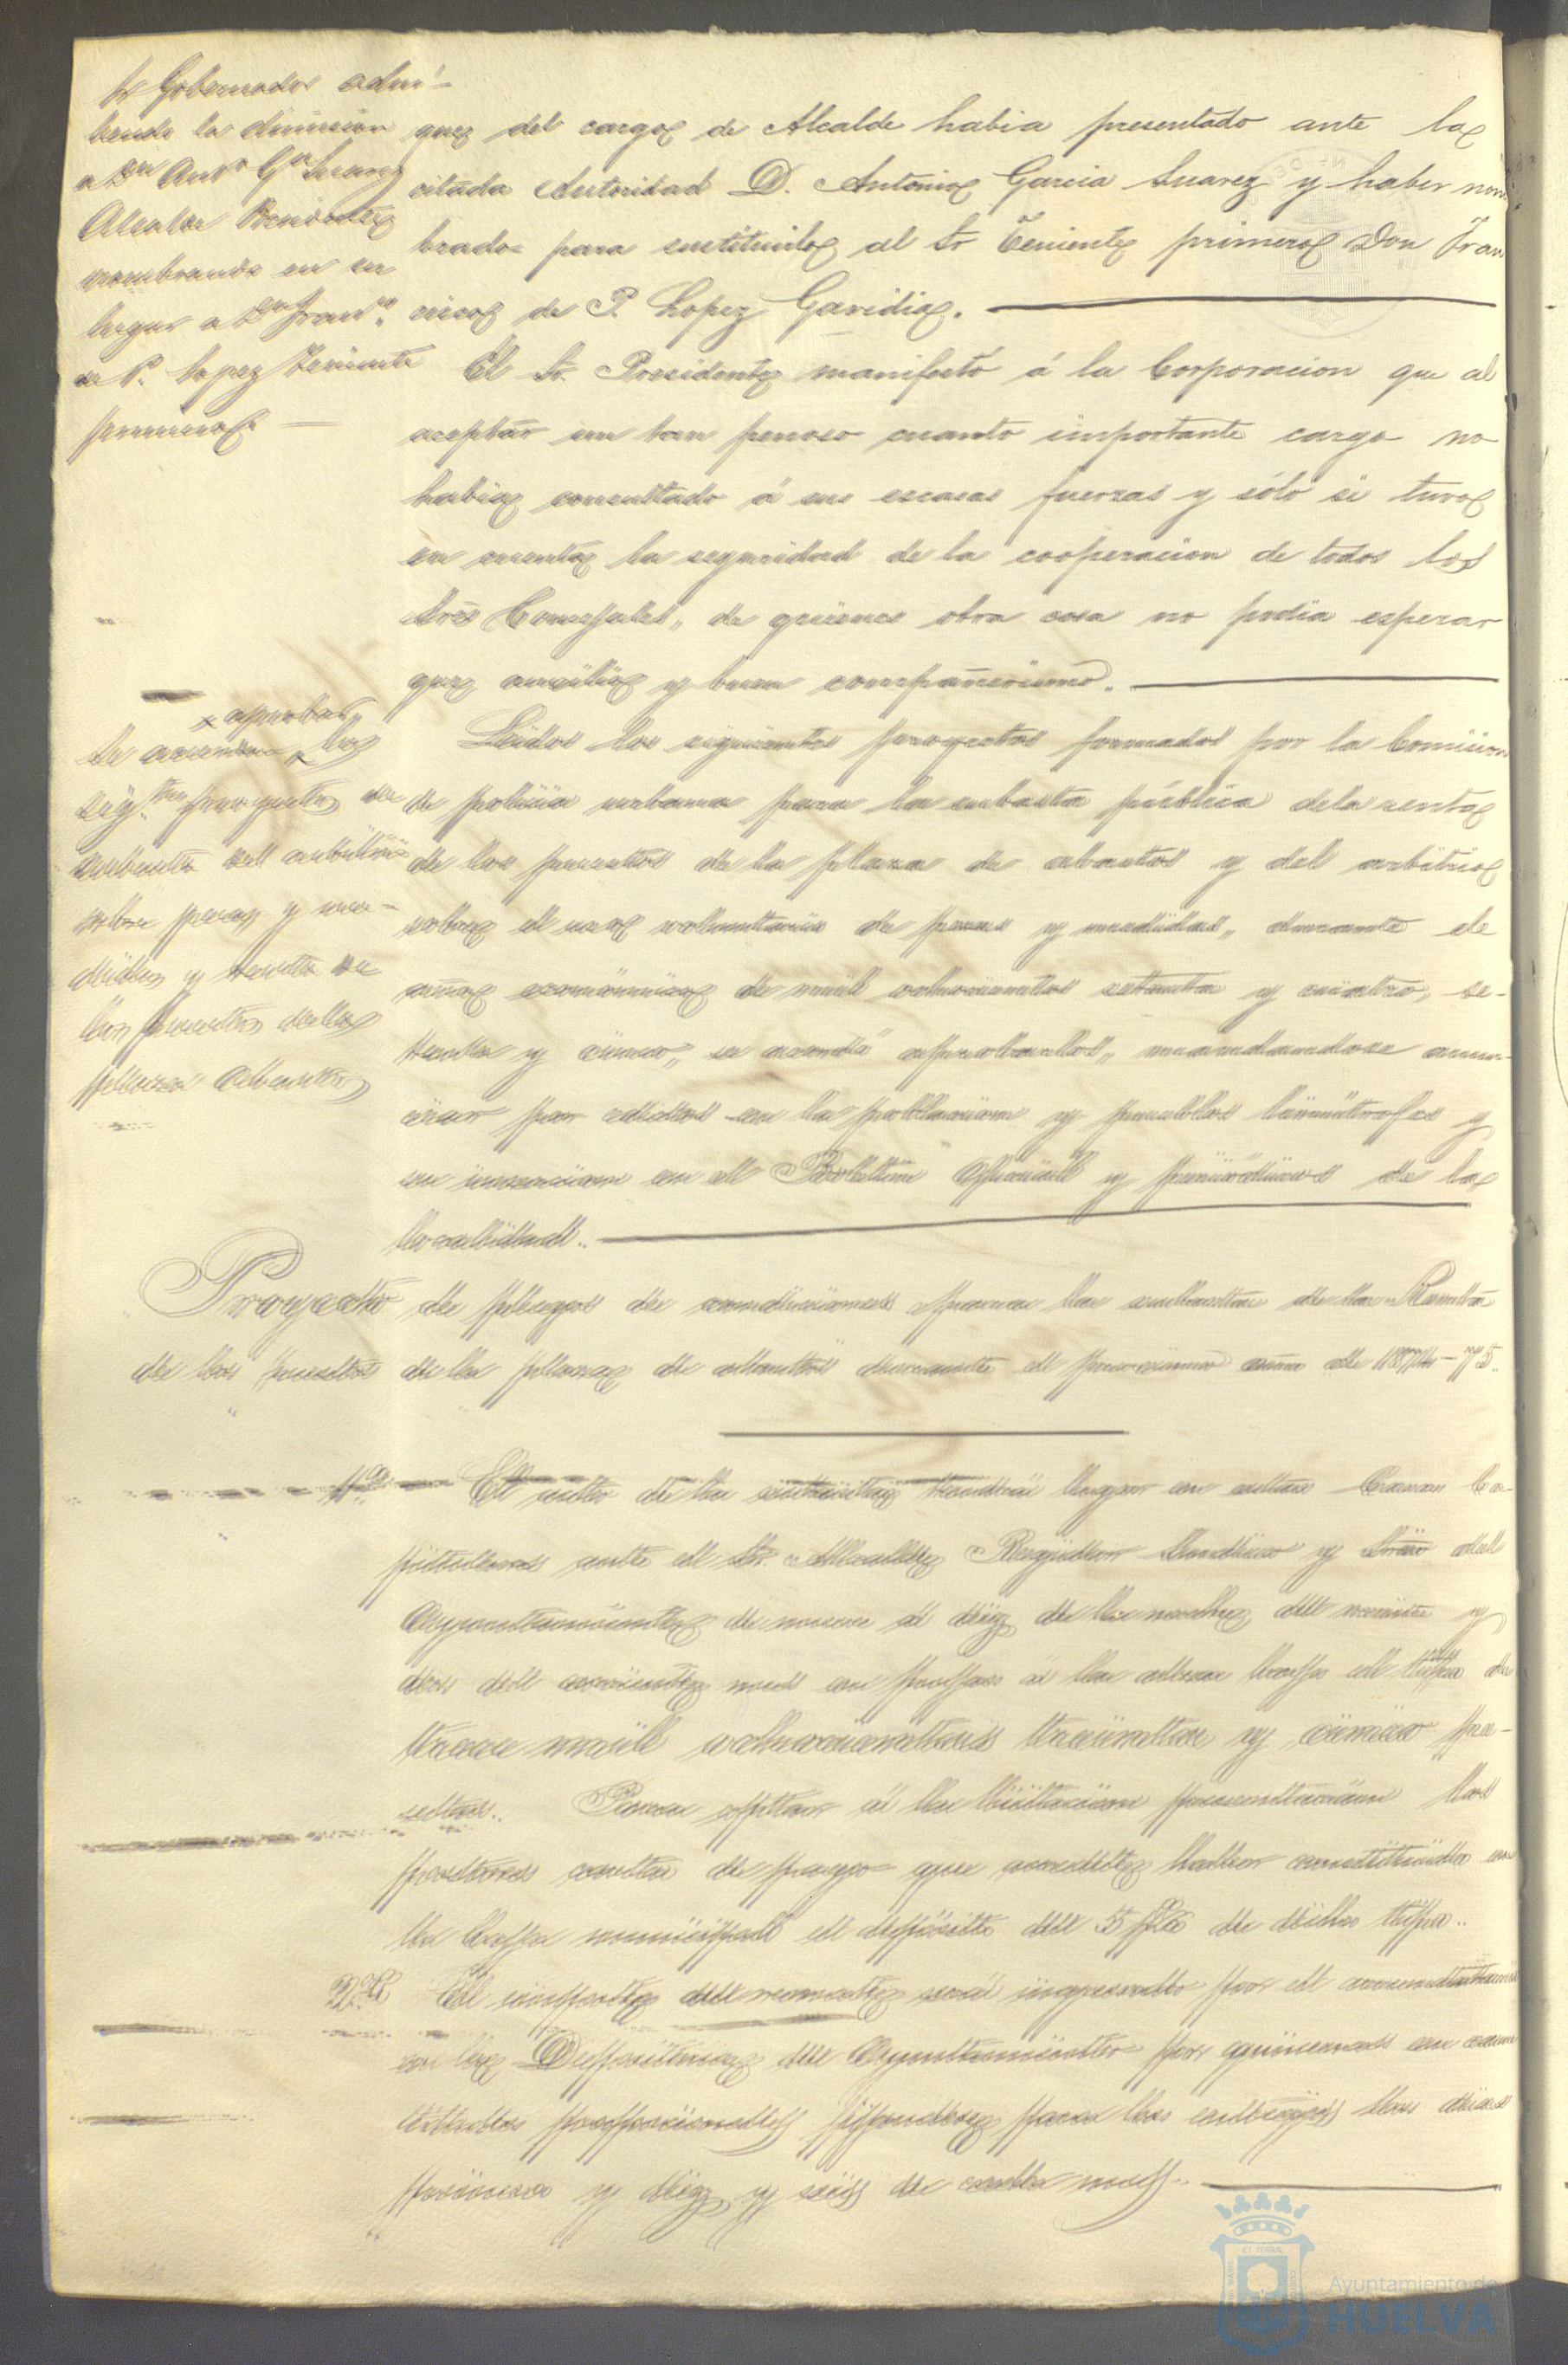 Sr Gobernador admi-
tiendo la dimision
a Dn Antº Gª Suarez
Alcalde Presidente
nombrando en su
lugar a Dn Franco.
de P. Lopez Teniente
primero.
que del cargo de Alcalde habia presentado ante la
citada Autoridad D. Antonio Garcia Suarez y haber nom-
brado para sustituirlo al Sr Teniente primero Don Fran
cisco de P. Lopez Garidia.
El Sr. Presidente manifestó á la Corporacion que al
aceptar un tan penoso cuanto importante cargo no
habia consultado á sus escasas fuerzas y sólo si tuvo
en cuenta la seguridad de la cooperacion de todos los
Sres Concejales, de quienes otra cosa no podia esperar
que auxilio y buen compañerismo.
aprobar
Se acuerda los
sigtes proyectos de
subasta del arbitrio
sobre pesas y me-
didas y renta de
los puestos de la
plaza Abastos
Leidos los siguientes proyectos formados por la Comision
de policia urbana para la subasta pública de la renta
de los puestos de la plaza de abastos y del arbitrio
sobre el uso voluntario de pesas y medidas, durante el
año económico de mil ochocientos setenta y cuatro, se-
tenta y cinco, se acordó aprobarlos, mandandose anun-
ciar por edictos en la poblacion y pueblos limitrofes y
su insercion en el Boletin Oficial y periodicos de la
localidad.
Proyecto de pliegos de condiciones para la subasta de la Renta
de los puestos de la plaza de abastos durante el procsimo año de 1874-75.
1ª El acto de la subasta tendrá lugar en estas Casas Ca-
pitulares ante el Sr. Alcalde, Regidor Sindico y Srio del
Ayuntamiento de nueve á diez de la noche del veinte y
dos del corriente mes en pujas á la alza bajo el tipo de
trece mil ochocientas treinta y cinco pe-
setas. Para optar á la licitacion presentarán los
postores carta de pago que acredite haber constituido en
la Caja municipal el deposito del 5 p% de dicho tipo.
2ª El importe del remate será ingresado por el arrendatario
en la Depositaria del Ayuntamiento por quincenas en can
tidades proporcionales fijandose para las entregas los dias
primero y diez y seis de cada mes.
Ayuntamiento de
HUELVA